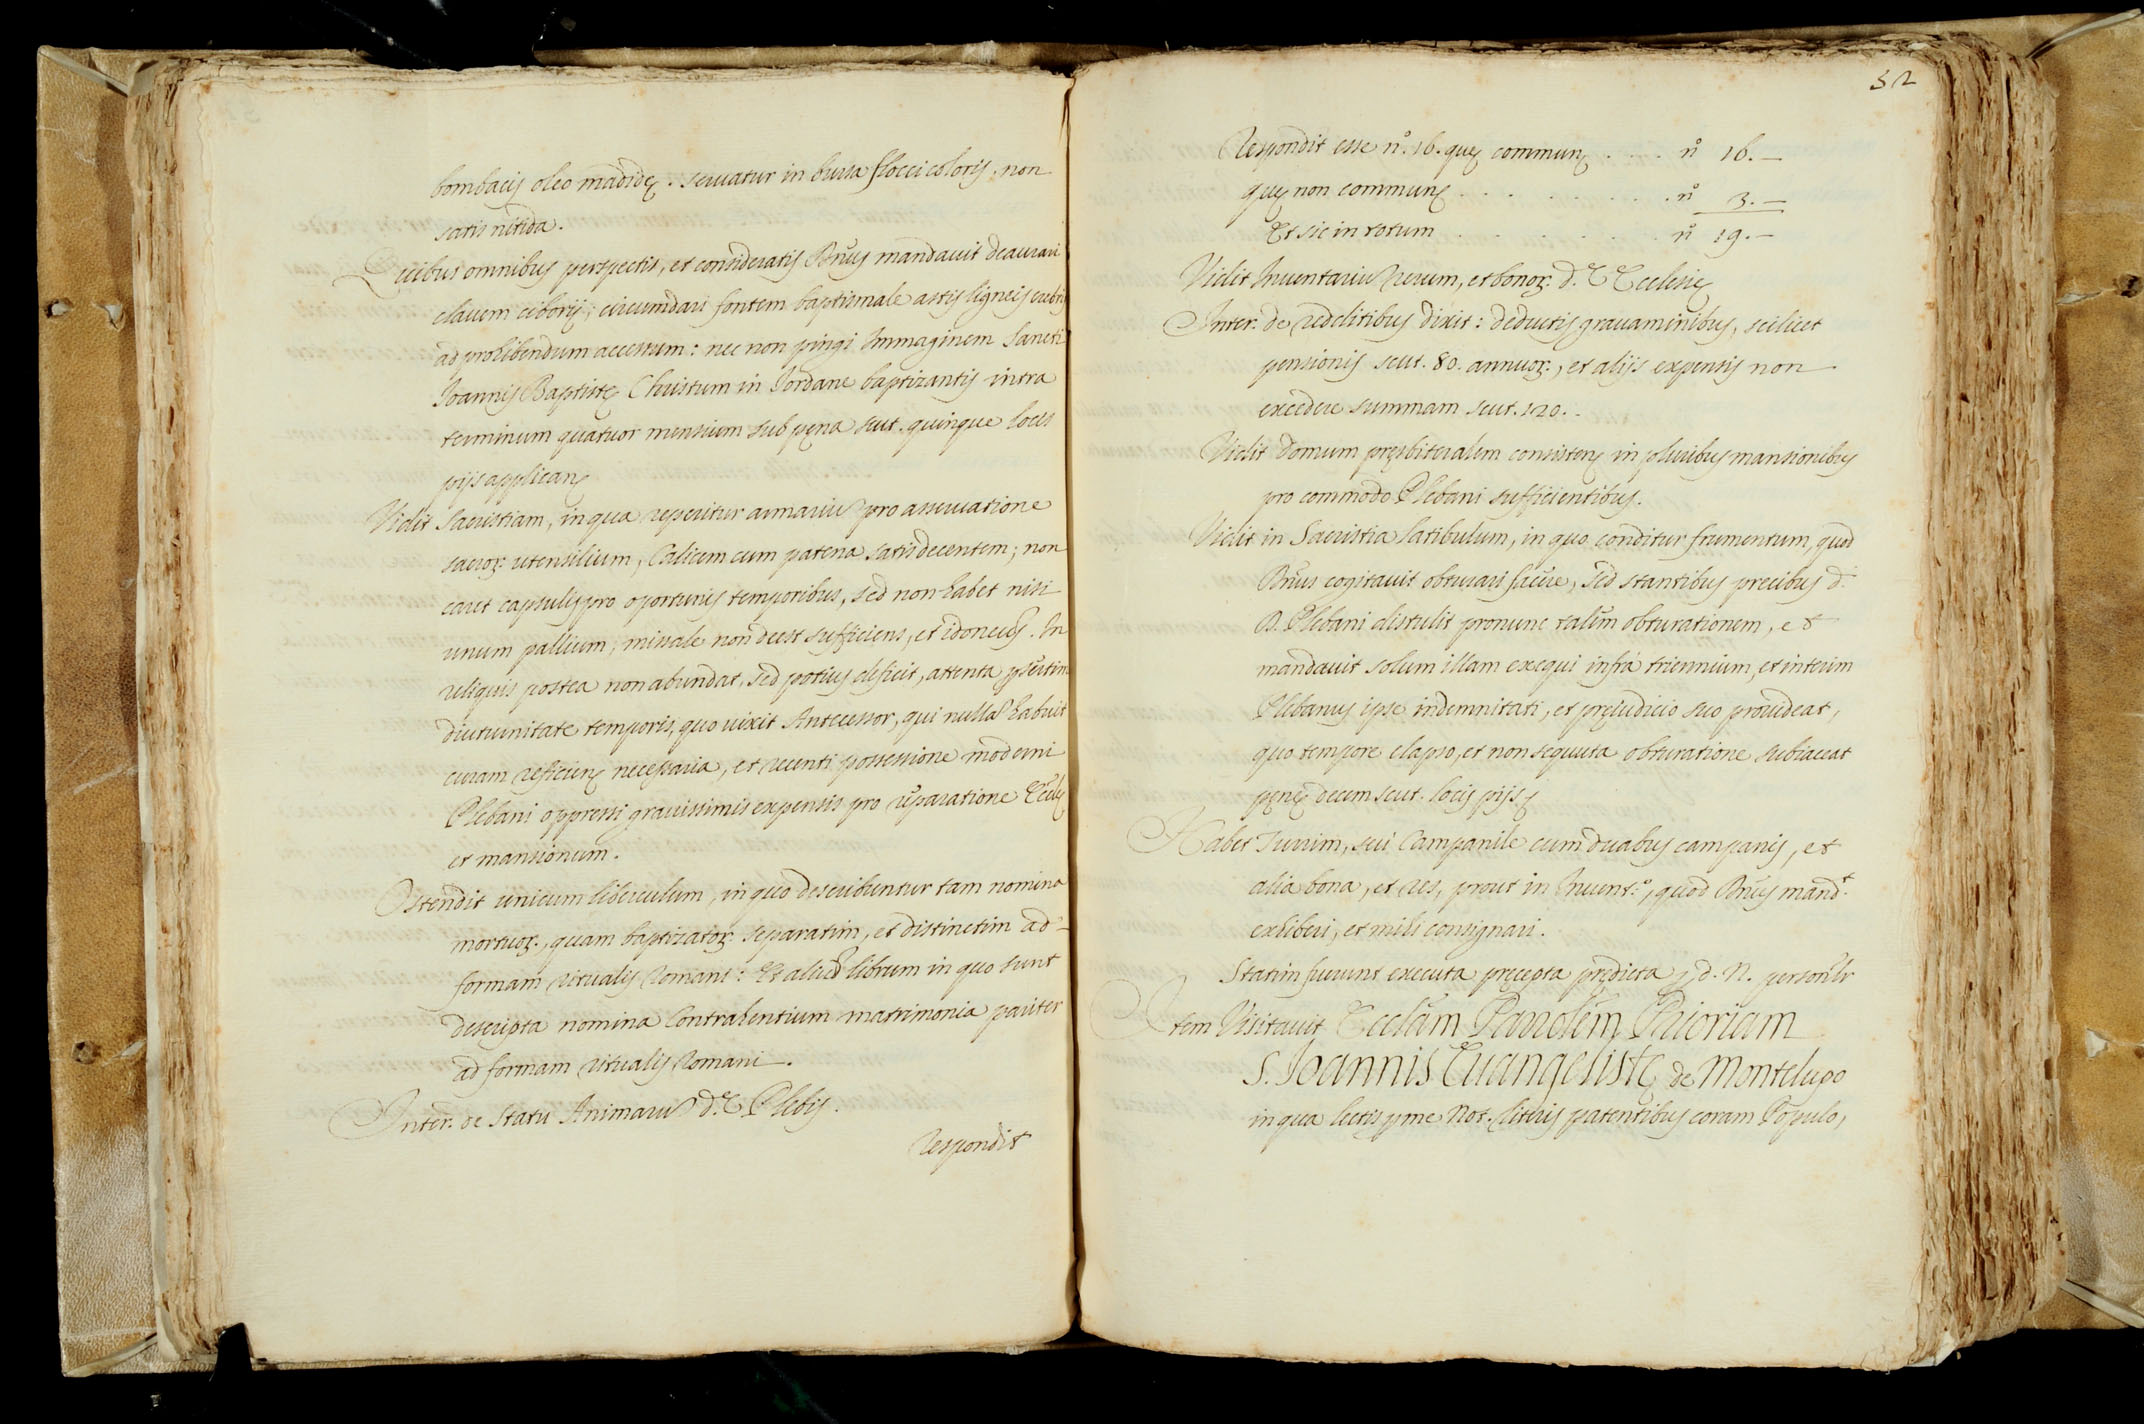 bombacis oleo madidę. seruatur in bursa flocci coloris, non
satis nitida.
Quibus omnibus perspectis, et consideratis Rm̃us mandauit deaurari
clauem ciborij; circumdari fontem baptismale astis ligneis crebris
ad prohibendum accessum: nec non pingi Immaginem Sancti
Ioannis Baptistę Christum in Iordane baptizantis intra
terminum quatuor mensium sub pęna scut. quinque locis
pijs applican
Vidit Sacristiam, in qua reperitur armariũ pro asseruatione
sacroꝝ utensilium, Calicem cum patena satis decentem; non
caret capsulis pro oportunis temporibus, sed non habet nisi
unum pallium, missale non deest sufficiens, et idoneũ. In
reliquis postea non abundat, sed potius deficit, attenta pr̃sertim
diuturnitate temporis, quo uixit Antecessor, qui nullã habuit
curam reficien necessaria, et recenti possessione moderni
Plebani oppressi grauissimis expensis pro reparatione Eccl̃ę
et mansionum.
Ostendit unicum liberculum, in quo describuntur tam nomina
mortuoꝝ, quam baptizatoꝝ separatim, et distinctim ad
formam ritualis Romani: Et aliud librum in quo sunt
descripta nomina Contrahentium matrimonia pariter
ad formam ritualis Romani.
Inter. de Statu Animarũ d.ę Plebis.
Respondit
52
Respondit esse n.º 16. quę commun . . . . nº 16.—
quę non commun . . . . . . . . nº 3.—
Et sic in totum . . . . . . . nº 19.—
Vidit Inuentariũ rerum, et bonoꝝ d.ę Ecclesię
Inter. de redditibus dixit: deductis grauaminibus, scilicet
pensionis scut. 80. annuoꝝ, et alijs expensis non
excedere summam scut. 120.
Vidit domum pręsbiteralem consisten in pluribus mansionibus
pro commodo Plebani sufficientibus.
Vidit in Sacristia latibulum, in quo conditur frumentum, quod
Rm̃us cogitauit obturari facere, sed stantibus precibus d.
R. Plebani distulit pro nunc talem obturationem, et
mandauit solum illam exequi infra triennium, et interim
Plebanus ipse indemnitati, et pręiudicio suo prouideat,
quo tempore elapso, et non sequuta obturatione subiaceat
pęnę decem scut. locis pijs
Habet Turrim, seu Campanile cum duabus campanis, et
alia bona, et res, prout in Inuent.º, quod Rm̃us mand.t
exhiberi, et mihi consignari.
Statim fuerunt executa pręcepta prędicta p d. N. person̾lr
Item Visitauit Eccl̃am Parrol̃em Prioriam
S. Ioannis Euangelistę de Montelupo
in qua lectis p me Not. litt̃is patentibus coram Populo,